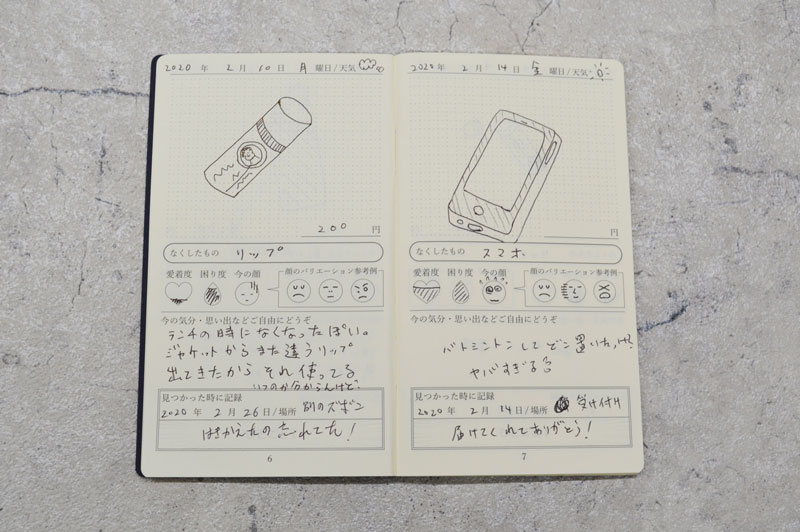 2020 年 2 月 10 日 月 曜日/天気
200 円
なくしたもの リップ
愛着度 困り度 今の顔 顔のバリエーション参考例
今の気分・思い出などご自由にどうぞ
ランチの時になくなったぽい。
ジャケットからまた違うリップ
出てきたから それ使ってる
いつのか分からんけど、
見つかった時に記録
2020 年 2 月 26 日/場所 別のズボン
はきかえたの忘れてた!
6
2020 年 2 月 14 日 金 曜日/天気
円
なくしたもの スマホ
愛着度 困り度 今の顔 顔のバリエーション参考例
今の気分・思い出などご自由にどうぞ
バトミントンしてどこ置いたっけ?
ヤバすぎる
見つかった時に記録
2020 年 2 月 14 日/場所 受け付け
届けてくれてありがとう!
7